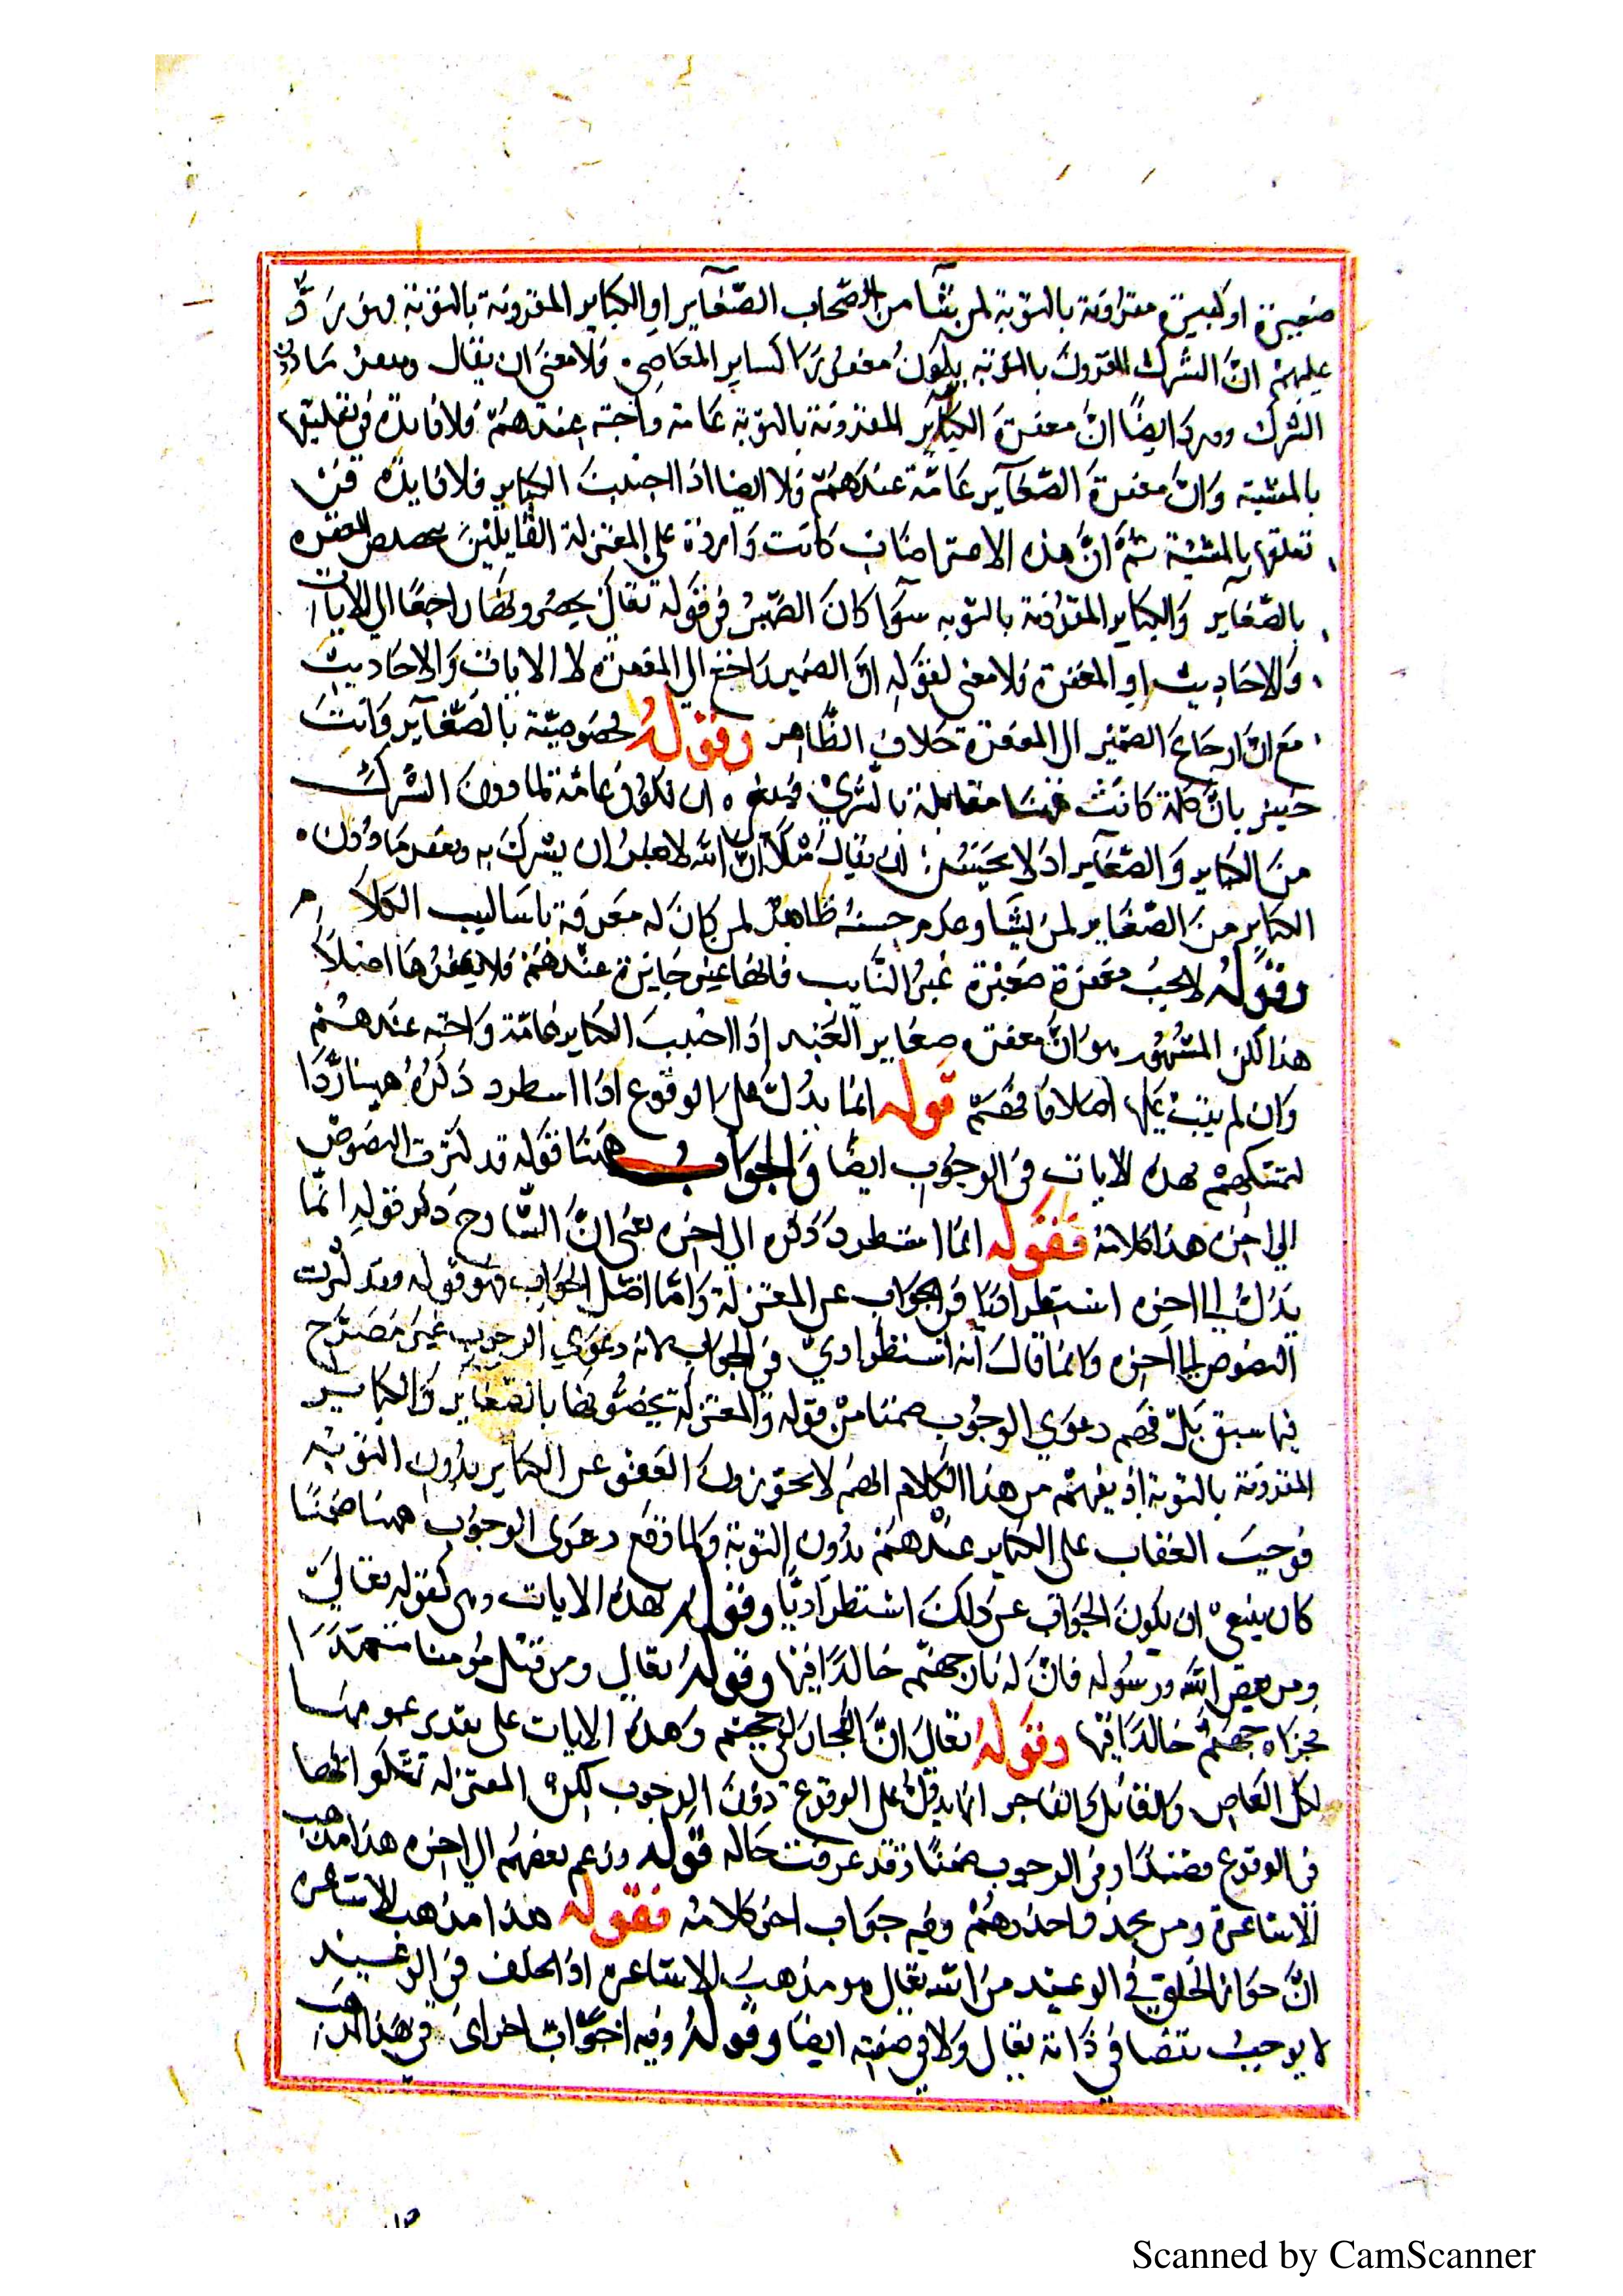 صغيرة او كبيرة مقرونة بالتوبة لمن يشا من اصحاب الصّغآير او الكباير المقرونة بالتوبة فهو يردّ
عليهم انّ الشرك المقرون بالتوبة يكون مغفورًا كساير المعاصى فلا معنى ان يقال ويغفر مادون
الشرك ويرد ايضًا انّ مغفرة الكبآير المقرونة بالتوبة عامة واجبة عندهم فلا فايدة فى تعليقها
بالمشية وَانّ مغفرة الصّغآير عامّة عندهم ايضا اذا اجتنبت الكباير فلا فايدة فى
تعلقها بالمشية ثمّ انّ هذه الاعتراضات كانت واردة على المعتزلة القايلين المغفره
بالصّغاير وَالكباير المقرونة بالتوبه سوآ كان الضّمير فى قوله تعالى يخصّونها راجعًا الى الايات
وَالاحاديث او المغفرة فلا معنى لقوله انّ الضمير راجع الى المغفرة لا الايات وَالاحاديث
مع انّ ارجاع الضمير الى المغفرة خلاف الظّاهر وقوله مخصوصيّة بالصّغآير وَانت
خبير بانّ كلمة كانت ههنا مقابلة بالشرك فينبغى ان تكون عامّة لما دون الشرك
منَ الكباير وَالصّغآير اذ لا يحسن ان يقال مثلًا انّ الله لا يغفر ان يشرك به ويغفر مَا دُون
الكباير منَ الصّغاير لمن يشآ وعدم حسنه ظاهر لمن كان له معرفة باساليب الكلام
وقوله لا يجب مغفرة صغيرة غير التايب فانها غير جايزة عندهم فلا يغفرها اصلًا
هذا لكن المشهور هو انّ مغفرة صغاير اذا اجتنب الكباير عامّة واجبه عندهم
وَان لم يتب عليها اصلا فافهم قوله انما يدلّ على الوقوع اذا اسطرد ذكره ههنا ردًّا
لتمسكهم بهذه الايات فى الوجوب ايضًا وَالجواب ههنا قوله قد كثرت النصوص
الى اخره هذا كلامه فقوله انما استطرد ذكره الى اخره يعنى انّ الشّارح ذكر قوله انّما
يدلّ الى اخره استطراديا فى الجواب عن المعتزلة وَامّا اصل الجواب فهو قوله وقد كثرت
النصوص الى اخره وانما قال انه استطراديّ فى الجواب لانه دعوى الوجوب غير مصرّح
فيما سبق بل فهم دعوى الوجوب ضمنا من قوله وَالمعتزلة يخصّونها بالصّغاير وَالكباير
المقرونة بالتوبة اذ يفهم من هذا الكلام انهم لا يجوّزون العفو عن الكباير بدون التوبة
فوجب العقاب على الكباير عندهم بدون التوبة ولما وقع دعوى الوجوب ههنا ضمنًا
كان ينبغى ان يكون الجواب عن ذلك استطراديًّا وقوله بهذه الايات وهى كقوله تعالى
ومن يعص الله ورسوله فانّ له نار جهنّم خالدًا فيها وقوله تعالى ومن قتل مؤمنا متعمّدًا
فجزاه جهنّم خالدًا فيها وقوله تعالى انّ الفجار لفى جحيم وهذه الايات على تقدير عمومها
لكل العاصى وَالقاتل والفاجر انما يدلّ على الوقوع دون الوجوب لكن المعتزلة تمسّكوا بها
فى الوقوع قصدًا وفى الوجوب ضمنًا وقد عرفت حاله قوله وزعم بعضهم الى اخره هذا مذهب
الاشاعرة ومن يحذو حذوهم وفيه جواب اخر كلامه فقوله هذا مذهب الاشاعرة
انّ جواز الخلف فى الوعيد من الله تعالى هو مذهب الاشاعرة اذ الخلف فى الوعيد
لا يوجب نقصا فى ذاته تعالى ولا فى صفته ايضا وقوله وفيه جواب اخر اى فى هذا المذهب
Scanned by CamScanner